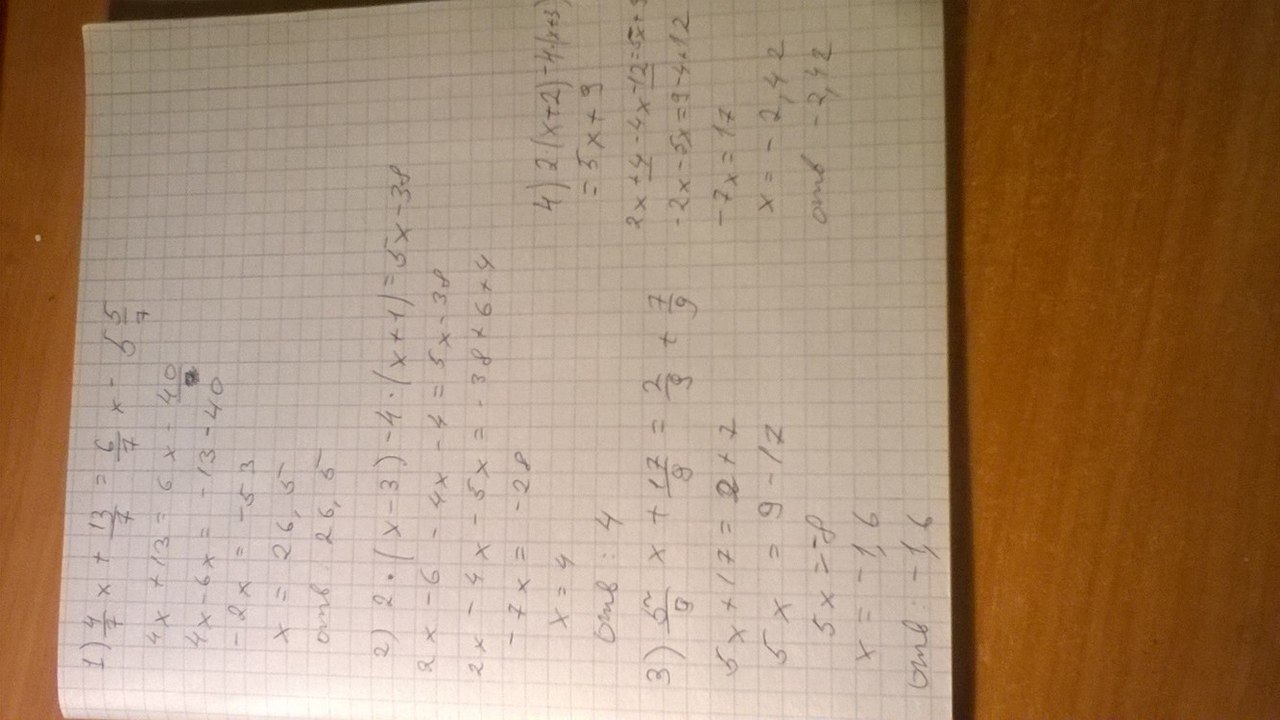 1) 4/7 x + 13/7 = 6/7 x - 5 5/7
4x + 13 = 6x - 40
4x - 6x = -13 - 40
-2x = -53
x = 26,5
отв 26,5
2) 2·(x-3)-4·(x+1)=5x-38
2x-6-4x-4=5x-38
2x-4x-5x=-38+6+4
-7x = -28
x = 4
отв: 4
3) 5/9 x + 17/9 = 2/9 + 7/9
5x+17=2+7
5x = 9-17
5x=-8
x = -1,6
отв: -1,6
4) 2·(x+2)-4·(x+3)
= 5x+9
2x+4-4x-12=5x+9
-2x-5x=9-4+12
-7x=17
x = -2,42
отв -2,42